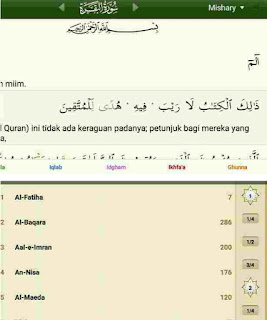 سُورَةُ الْبَقَرَةِ
Mishary
بِسْمِ اللَّهِ الرَّحْمَٰنِ الرَّحِيمِ
الٓمٓ
miim.
ذَٰلِكَ الْكِتَابُ لَا رَيْبَ ۛ فِيهِ ۛ هُدًى لِّلْمُتَّقِينَ
Quran) ini tidak ada keraguan padanya; petunjuk bagi mereka yang
a,
la Iqlab Idgham Ikhfa'a Ghunna
1 Al-Fatiha 7 1
2 Al-Baqara 286 1/4
3 Aal-e-Imran 200 1/2
3/4
4 An-Nisa 176
2
5 Al-Maeda 120
1/4